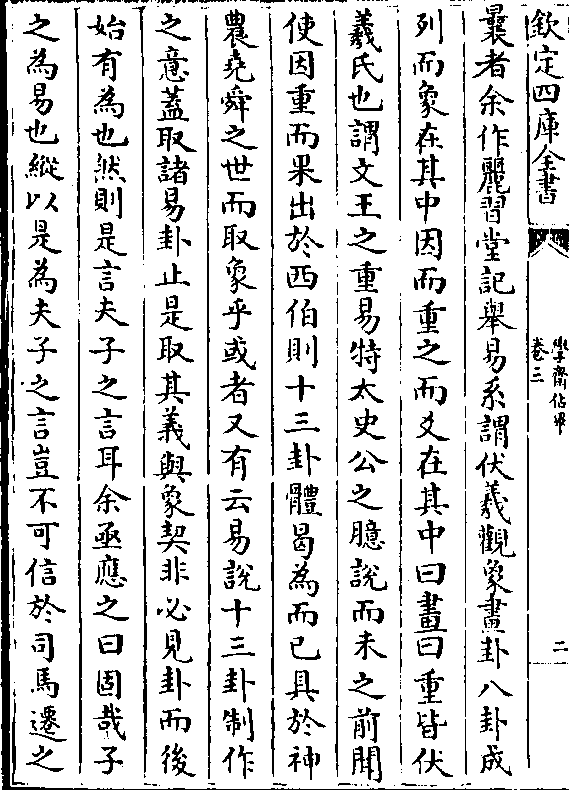 欽定四庫全書
學齋佔畢
卷三
二
曩者余作麗習堂記舉易系謂伏羲觀象畫卦八卦成
列而象在其中因而重之而爻在其中曰畫曰重皆伏
羲氏也謂文王之重易特太史公之臆說而未之前聞
使因重而果出於西伯則十三卦體曷為而已具於神
農堯舜之世而取象乎或者又有云易說十三卦制作
之意蓋取諸易卦止是取其義與象契非必見卦而後
始有為也然則是言夫子之言耳余亟應之曰固哉子
之為易也縱以是為夫子之言豈不可信於司馬遷之